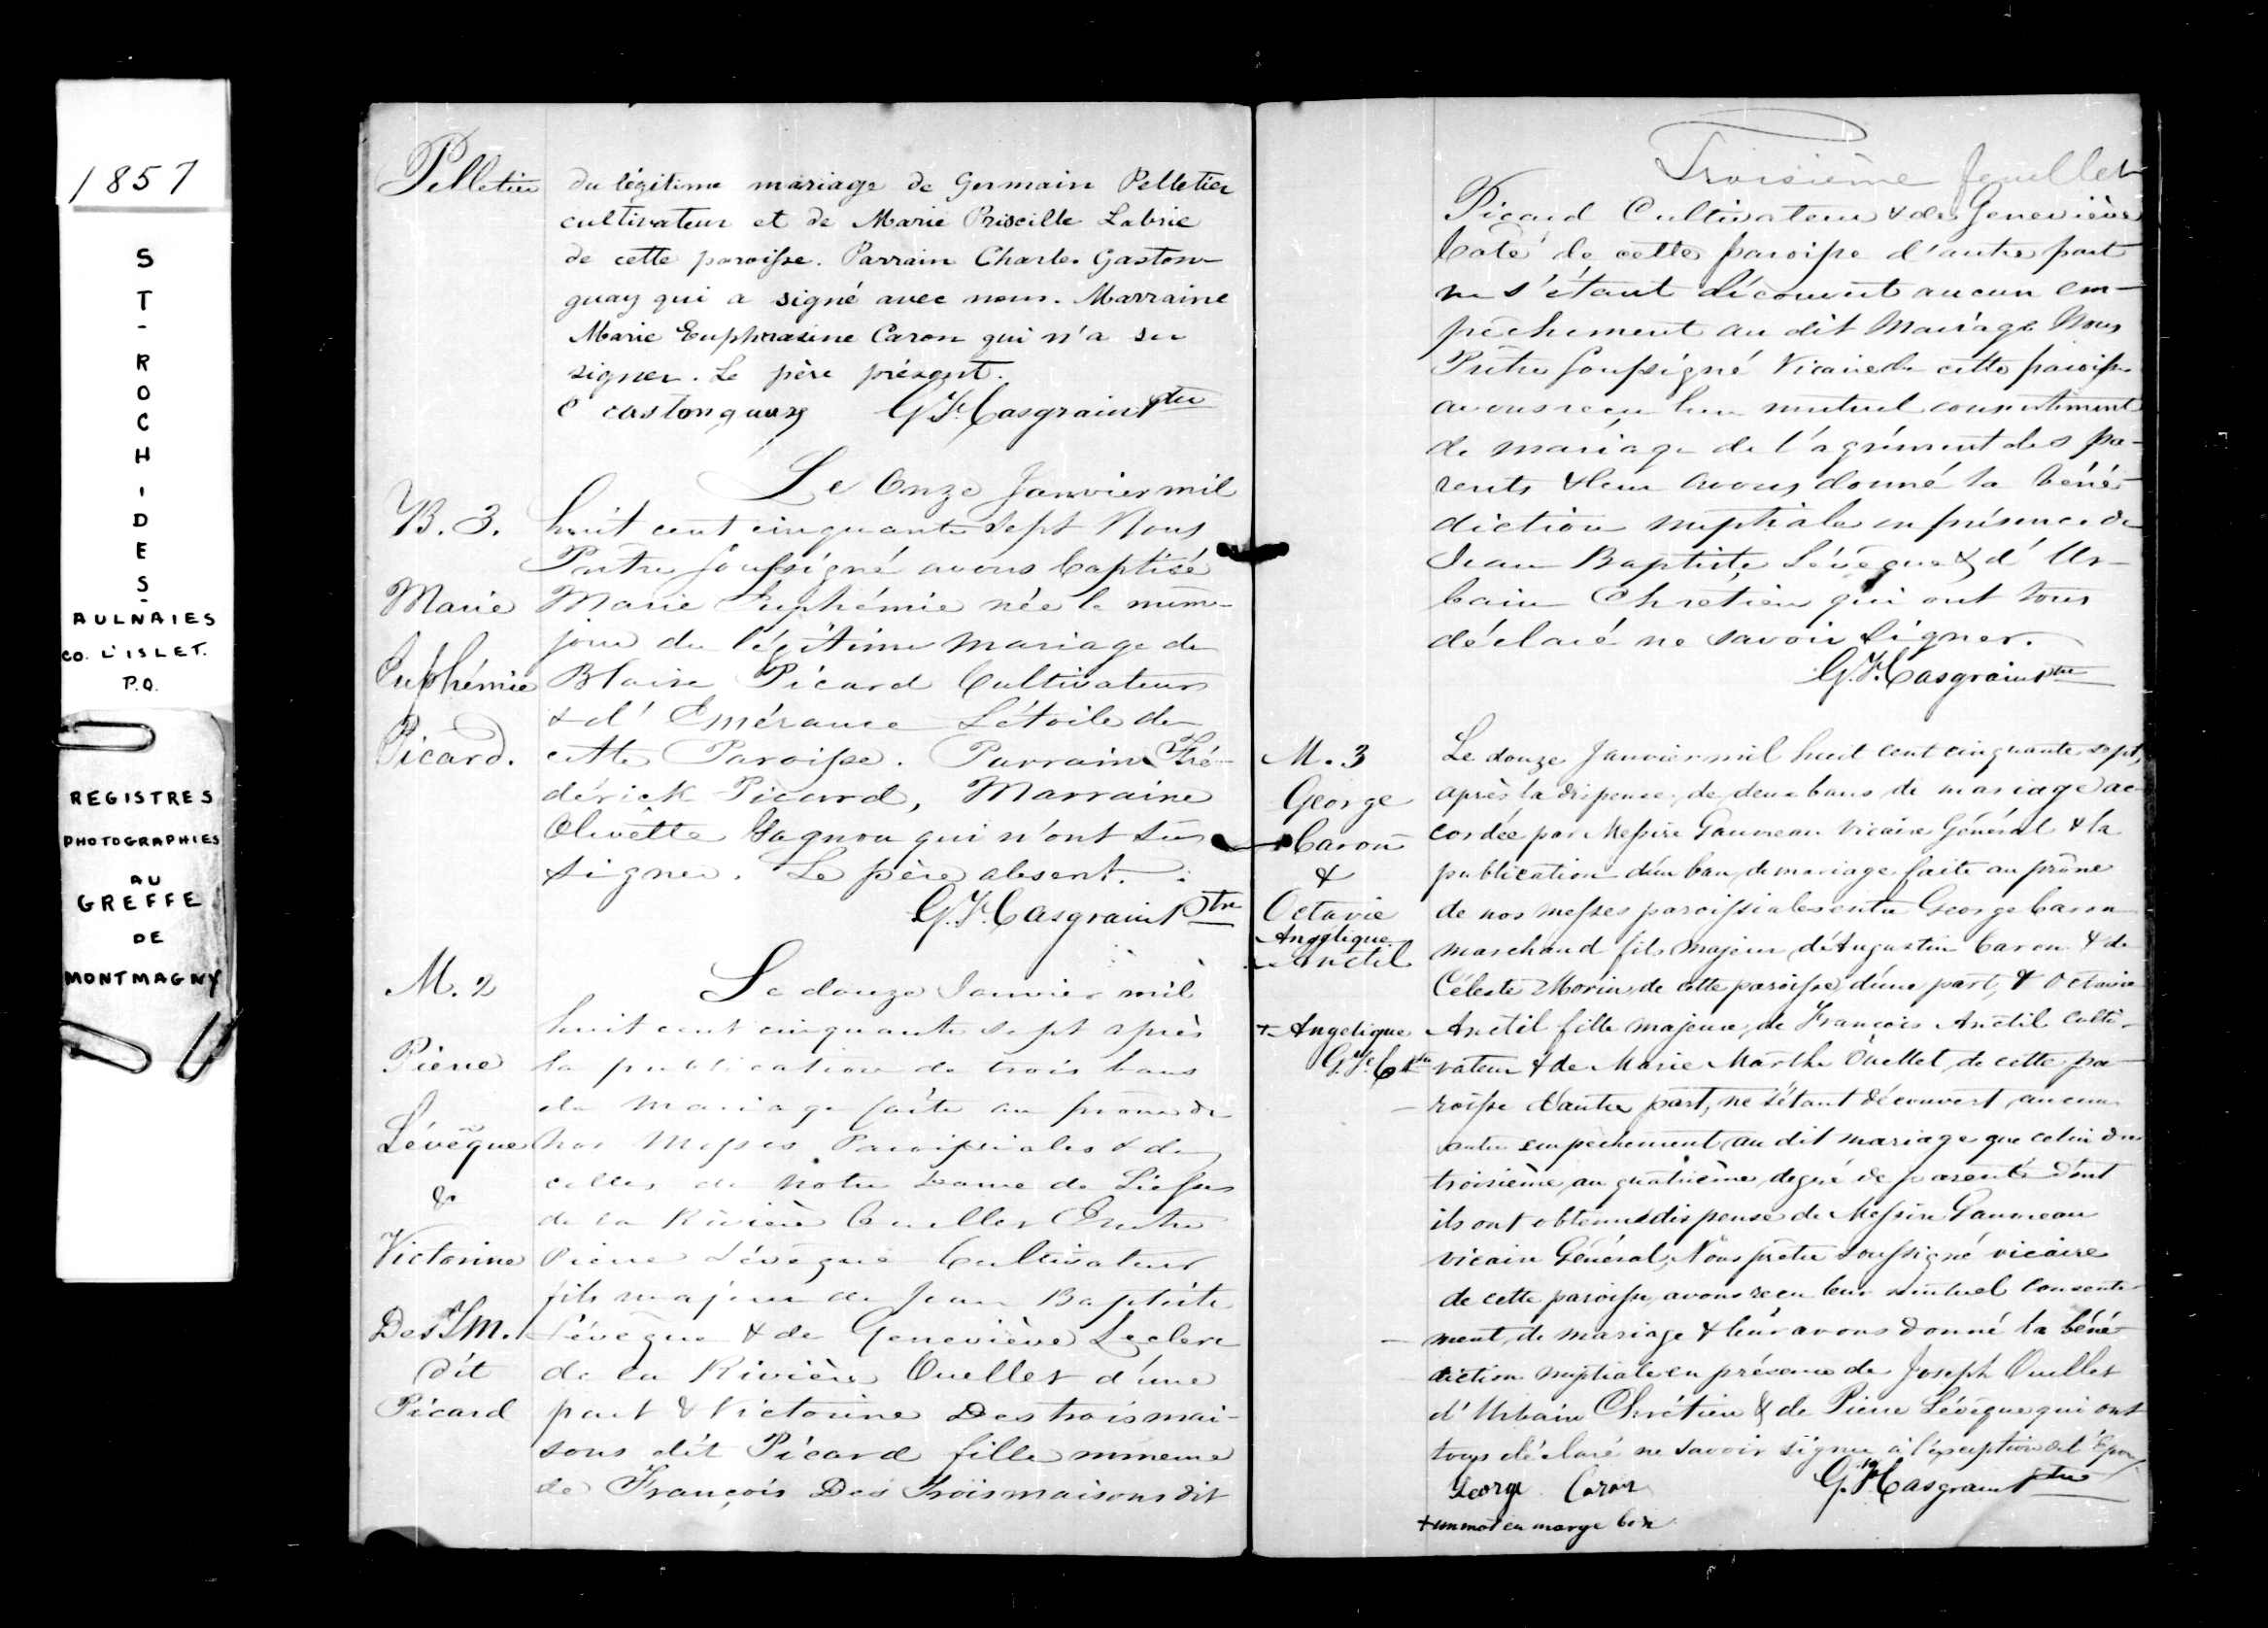 1857
ST-ROCH-DES-
AULNAIES
CO. L'ISLET.
P.Q.
REGISTRES
PHOTOGRAPHIES
AU
GREFFE
DE
MONTMAGNY
Pelletier
du légitime mariage de Germain Pelletier
cultivateur et de Marie Priscille Labrie
de cette paroisse. Parrain Charles Gaston-
guay qui a signé avec nous. Marraine
Marie Euphrasine Caron qui n'a su
signer. Le père présent.
C castonguay G.F. Casgrain Ptre
B. 3.
Marie
Euphémie
Picard.
Le Onze Janvier mil
huit cent cinquante sept Nous
Prêtre soussigné avons baptisé
Marie Euphémie née le même
jour du légitime mariage de
Blaise Picard Cultivateur
& d'Emérance Létoile de
cette Paroisse. Parrain Fré-
dérick Picard, Marraine
Olivette Gagnon qui n'ont su
signer. Le père absent.
G.F. Casgrain Ptre
M. 2
Pierre
Lévêque
&
Victorine
Des 3 m.
dit
Picard
Le douze Janvier mil
huit cent cinquante sept après
la publication de trois bans
de mariage faite au prône de
nos Messes Paroissiales & de
celles de Notre Dame de Liesse
de la Rivière Ouelle Entre
Pierre Lévêque Cultivateur
fils majeur de Jean Baptiste
Lévêque & de Geneviève Leclerc
de la Rivière Ouelle d'une
part & Victorine Des trois mai-
sons dit Picard fille mineure
de François Des Trois maisons dit
Troisième feuillet
Picard Cultivateur & de Geneviève
Coté de cette paroisse d'autre part
ne s'étant découvert aucun em-
pêchement au dit Mariage Nous
Prêtre soussigné Vicaire de cette paroisse
avons reçu leur mutuel consentement
de mariage de l'agrément des pa-
rents & leur avons donné la béné-
diction nuptiale en présence de
Jean Baptiste Lévêque & d'Ur-
bain Chrétien qui ont tous
déclaré ne savoir signer.
G.F. Casgrain Ptre
M. 3
George
Caron
&
Octavie
Angélique
Anctil
+ Angelique
G.F.C Ptre
Le douze Janvier mil huit cent cinquante sept,
après la dispense de deux bans de mariage ac-
cordée par Messire Gauvreau Vicaire Général & la
publication d'un ban de mariage faite au prône
de nos messes paroissiales entre George Caron
marchand fils majeur d'Augustin Caron & de
Céleste Morin de cette paroisse d'une part, & Octavie
Anctil fille majeure de François Anctil culti-
vateur & de Marie Marthe Ouellet de cette pa-
roisse d'autre part, ne s'étant découvert aucun
autre empêchement au dit mariage que celui du
troisième au quatrième degré de parenté dont
ils ont obtenu dispense de Messire Gauvreau
vicaire Général, Nous prêtre soussigné vicaire
de cette paroisse, avons reçu leur mutuel consente-
ment de mariage & leur avons donné la béné-
diction nuptiale en présence de Joseph Ouellet
d'Urbain Chrétien & de Pierre Lévêque qui ont
tous déclaré ne savoir signer à l'exception de l'Epoux
George Caron G.F. Casgrain Ptre
+ un mot en marge bon